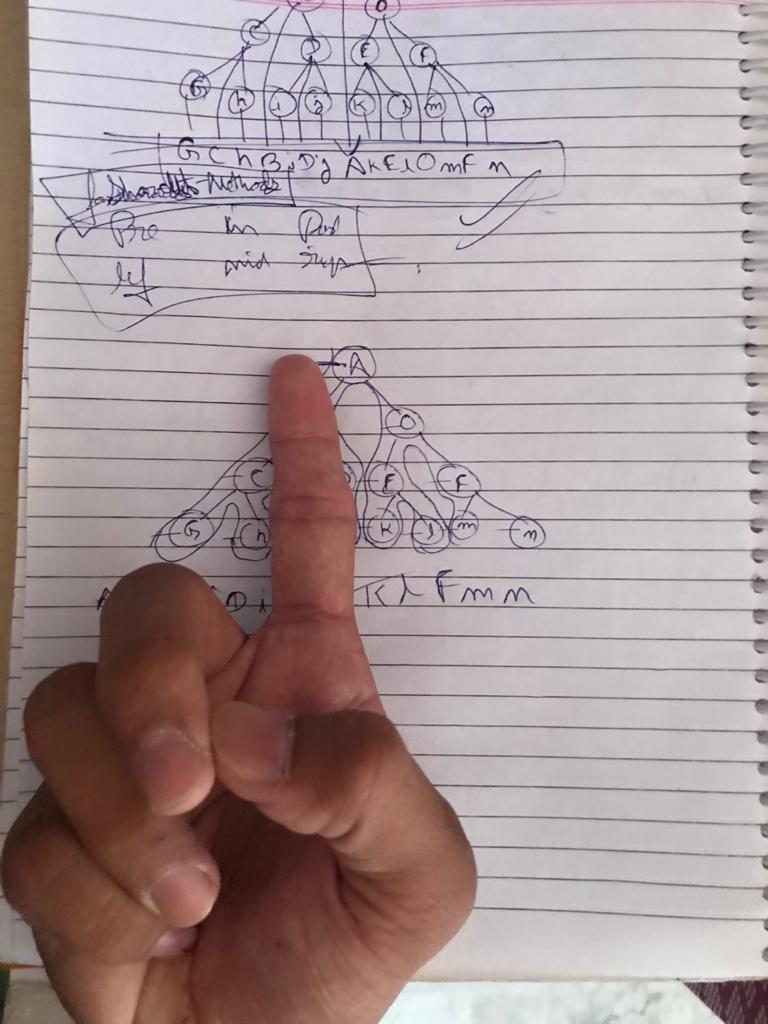 C D E F
G h i j K l m n
G C h B i D j A K E l O m F n
Shortcuts Methods
Pre in Post
lef mid
A
O
C E F
G h K l m n
A D i K l F m n